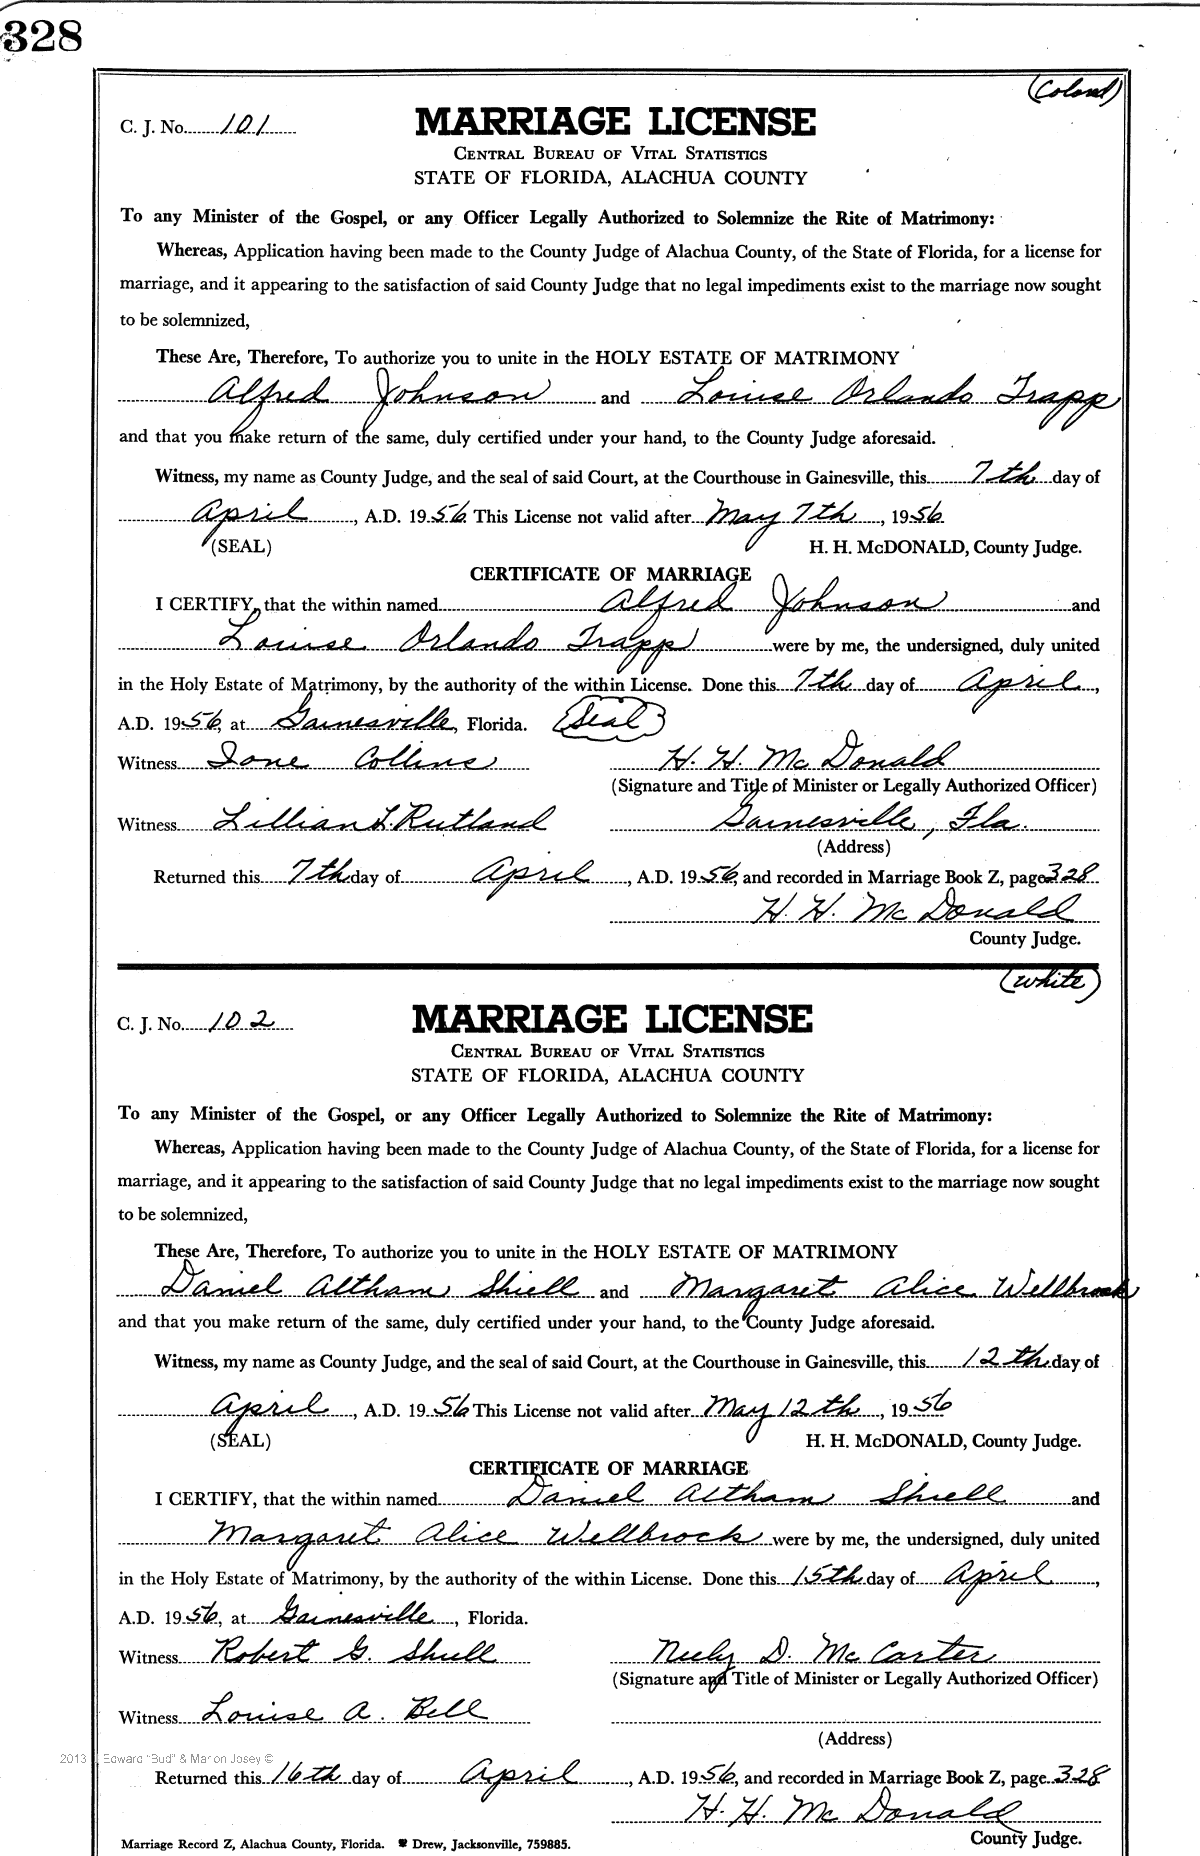 328
(Colored)
C. J. No. 101
MARRIAGE LICENSE
CENTRAL BUREAU OF VITAL STATISTICS
STATE OF FLORIDA, ALACHUA COUNTY
To any Minister of the Gospel, or any Officer Legally Authorized to Solemnize the Rite of Matrimony:
Whereas, Application having been made to the County Judge of Alachua County, of the State of Florida, for a license for
marriage, and it appearing to the satisfaction of said County Judge that no legal impediments exist to the marriage now sought
to be solemnized,
These Are, Therefore, To authorize you to unite in the HOLY ESTATE OF MATRIMONY
Alfred Johnson and Louise Orlando Trapp
and that you make return of the same, duly certified under your hand, to the County Judge aforesaid.
Witness, my name as County Judge, and the seal of said Court, at the Courthouse in Gainesville, this 7th day of
April, A.D. 1956 This License not valid after May 7th, 1956
(SEAL) H. H. McDONALD, County Judge.
CERTIFICATE OF MARRIAGE
I CERTIFY, that the within named Alfred Johnson and
Louise Orlando Trapp were by me, the undersigned, duly united
in the Holy Estate of Matrimony, by the authority of the within License. Done this 7th day of April,
A.D. 1956, at Gainesville, Florida. (Seal)
Witness Ione Collins H. H. McDonald
(Signature and Title of Minister or Legally Authorized Officer)
Witness Lillian L. Rutland Gainesville, Fla.
(Address)
Returned this 7th day of April, A.D. 1956, and recorded in Marriage Book Z, page 328
H. H. McDonald
County Judge.
(White)
C. J. No. 102
MARRIAGE LICENSE
CENTRAL BUREAU OF VITAL STATISTICS
STATE OF FLORIDA, ALACHUA COUNTY
To any Minister of the Gospel, or any Officer Legally Authorized to Solemnize the Rite of Matrimony:
Whereas, Application having been made to the County Judge of Alachua County, of the State of Florida, for a license for
marriage, and it appearing to the satisfaction of said County Judge that no legal impediments exist to the marriage now sought
to be solemnized,
These Are, Therefore, To authorize you to unite in the HOLY ESTATE OF MATRIMONY
Daniel Altham Shiell and Margaret Alice Wellbrock
and that you make return of the same, duly certified under your hand, to the County Judge aforesaid.
Witness, my name as County Judge, and the seal of said Court, at the Courthouse in Gainesville, this 12th day of
April, A.D. 1956 This License not valid after May 12th, 1956
(SEAL) H. H. McDONALD, County Judge.
CERTIFICATE OF MARRIAGE
I CERTIFY, that the within named Daniel Altham Shiell and
Margaret Alice Wellbrock were by me, the undersigned, duly united
in the Holy Estate of Matrimony, by the authority of the within License. Done this 15th day of April,
A.D. 1956, at Gainesville, Florida.
Witness Robert G. Shiell Neely D. McCarter
(Signature and Title of Minister or Legally Authorized Officer)
Witness Louise A. Bell
(Address)
2013 J. Edward "Bud" & Marion Josey ©
Returned this 16th day of April, A.D. 1956, and recorded in Marriage Book Z, page 328
H. H. McDonald
County Judge.
Marriage Record Z, Alachua County, Florida. Drew, Jacksonville, 759885.